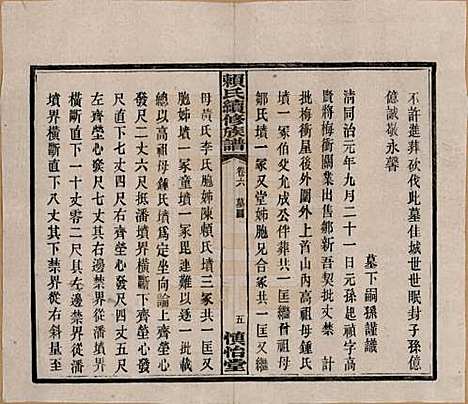 不許進葬砍伐此墓佳城世世眠封子孫億
億誠嚴永馨
墓下嗣孫謹識
清同治元年九月二十一日元孫起禎字高
賢將梅衝關業出售鄰新吾契批丈禁計
批梅衝屋後外圍外上高祖母鍾氏
墳一冢伯父允成公伴葬共一匡繼曾祖母
鄒氏墳一冢又堂姊胞兄合冢共一匡又
賴氏續修族譜
卷六
墓圖
五
慎怡堂
母黃氏李氏胞姊陳賴氏墳三冢共一匡又
胞姊墳一冢童墳一冢毘連難以四至
總以高祖母鍾氏墳一冢坐向論上齊塋心
發尺二丈六尺抵潘墳界橫斷下齊塋心發
尺直下七丈四尺右齊塋心橫過四丈五尺
左齊塋心橫过一丈二尺其右邊禁界從潘
墳界橫斷直下一十丈零二尺其左邊禁界從潘
墳界橫斷直下八丈其下禁界從右斜量至